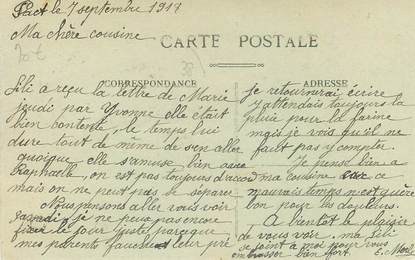 Pact le 7 septembre 1911
Ma chère cousine
CARTE POSTALE
CORRESPONDANCE
Lili a reçu la lettre de Marie
jeudi par Yvonne elle était
bien contente, le temps lui
dure tout de même de s'en aller
quoique elle s'amuse bien avec
Raphaelle, on est pas toujours d'accord
mais on ne peut pas se séparer
Nous pensons aller vous voir
samedi je ne peux pas encore
fixer le jour juste parceque
mes parents fauchent leur pré
ADRESSE
je retournerai écrire
j'attendais toujours la
pluie pour la farine
mais je vois qu'il ne
faut pas y compter.
Je pense bien a
ma cousine ce
mauvais temps n'est guère
bon pour les douleurs.
A bientôt le plaisir
de vous voir. ma Lili
se joint à moi pour vous
embrasser bien fort. E.